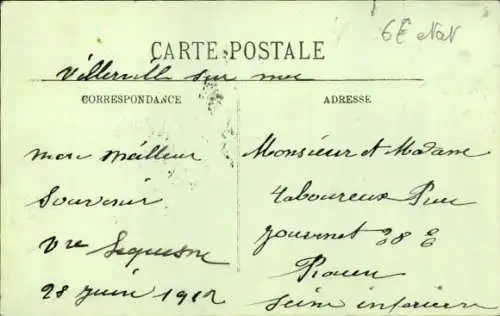 6E
CARTE POSTALE
Villerville sur mer
CORRESPONDANCE
mon meilleur
Souvenir
Vve Lequesne
28 juin 1912
ADRESSE
Monsieur et Madame
Laboureux Rue
Jouvenet 28
Rouen
Seine inferieure